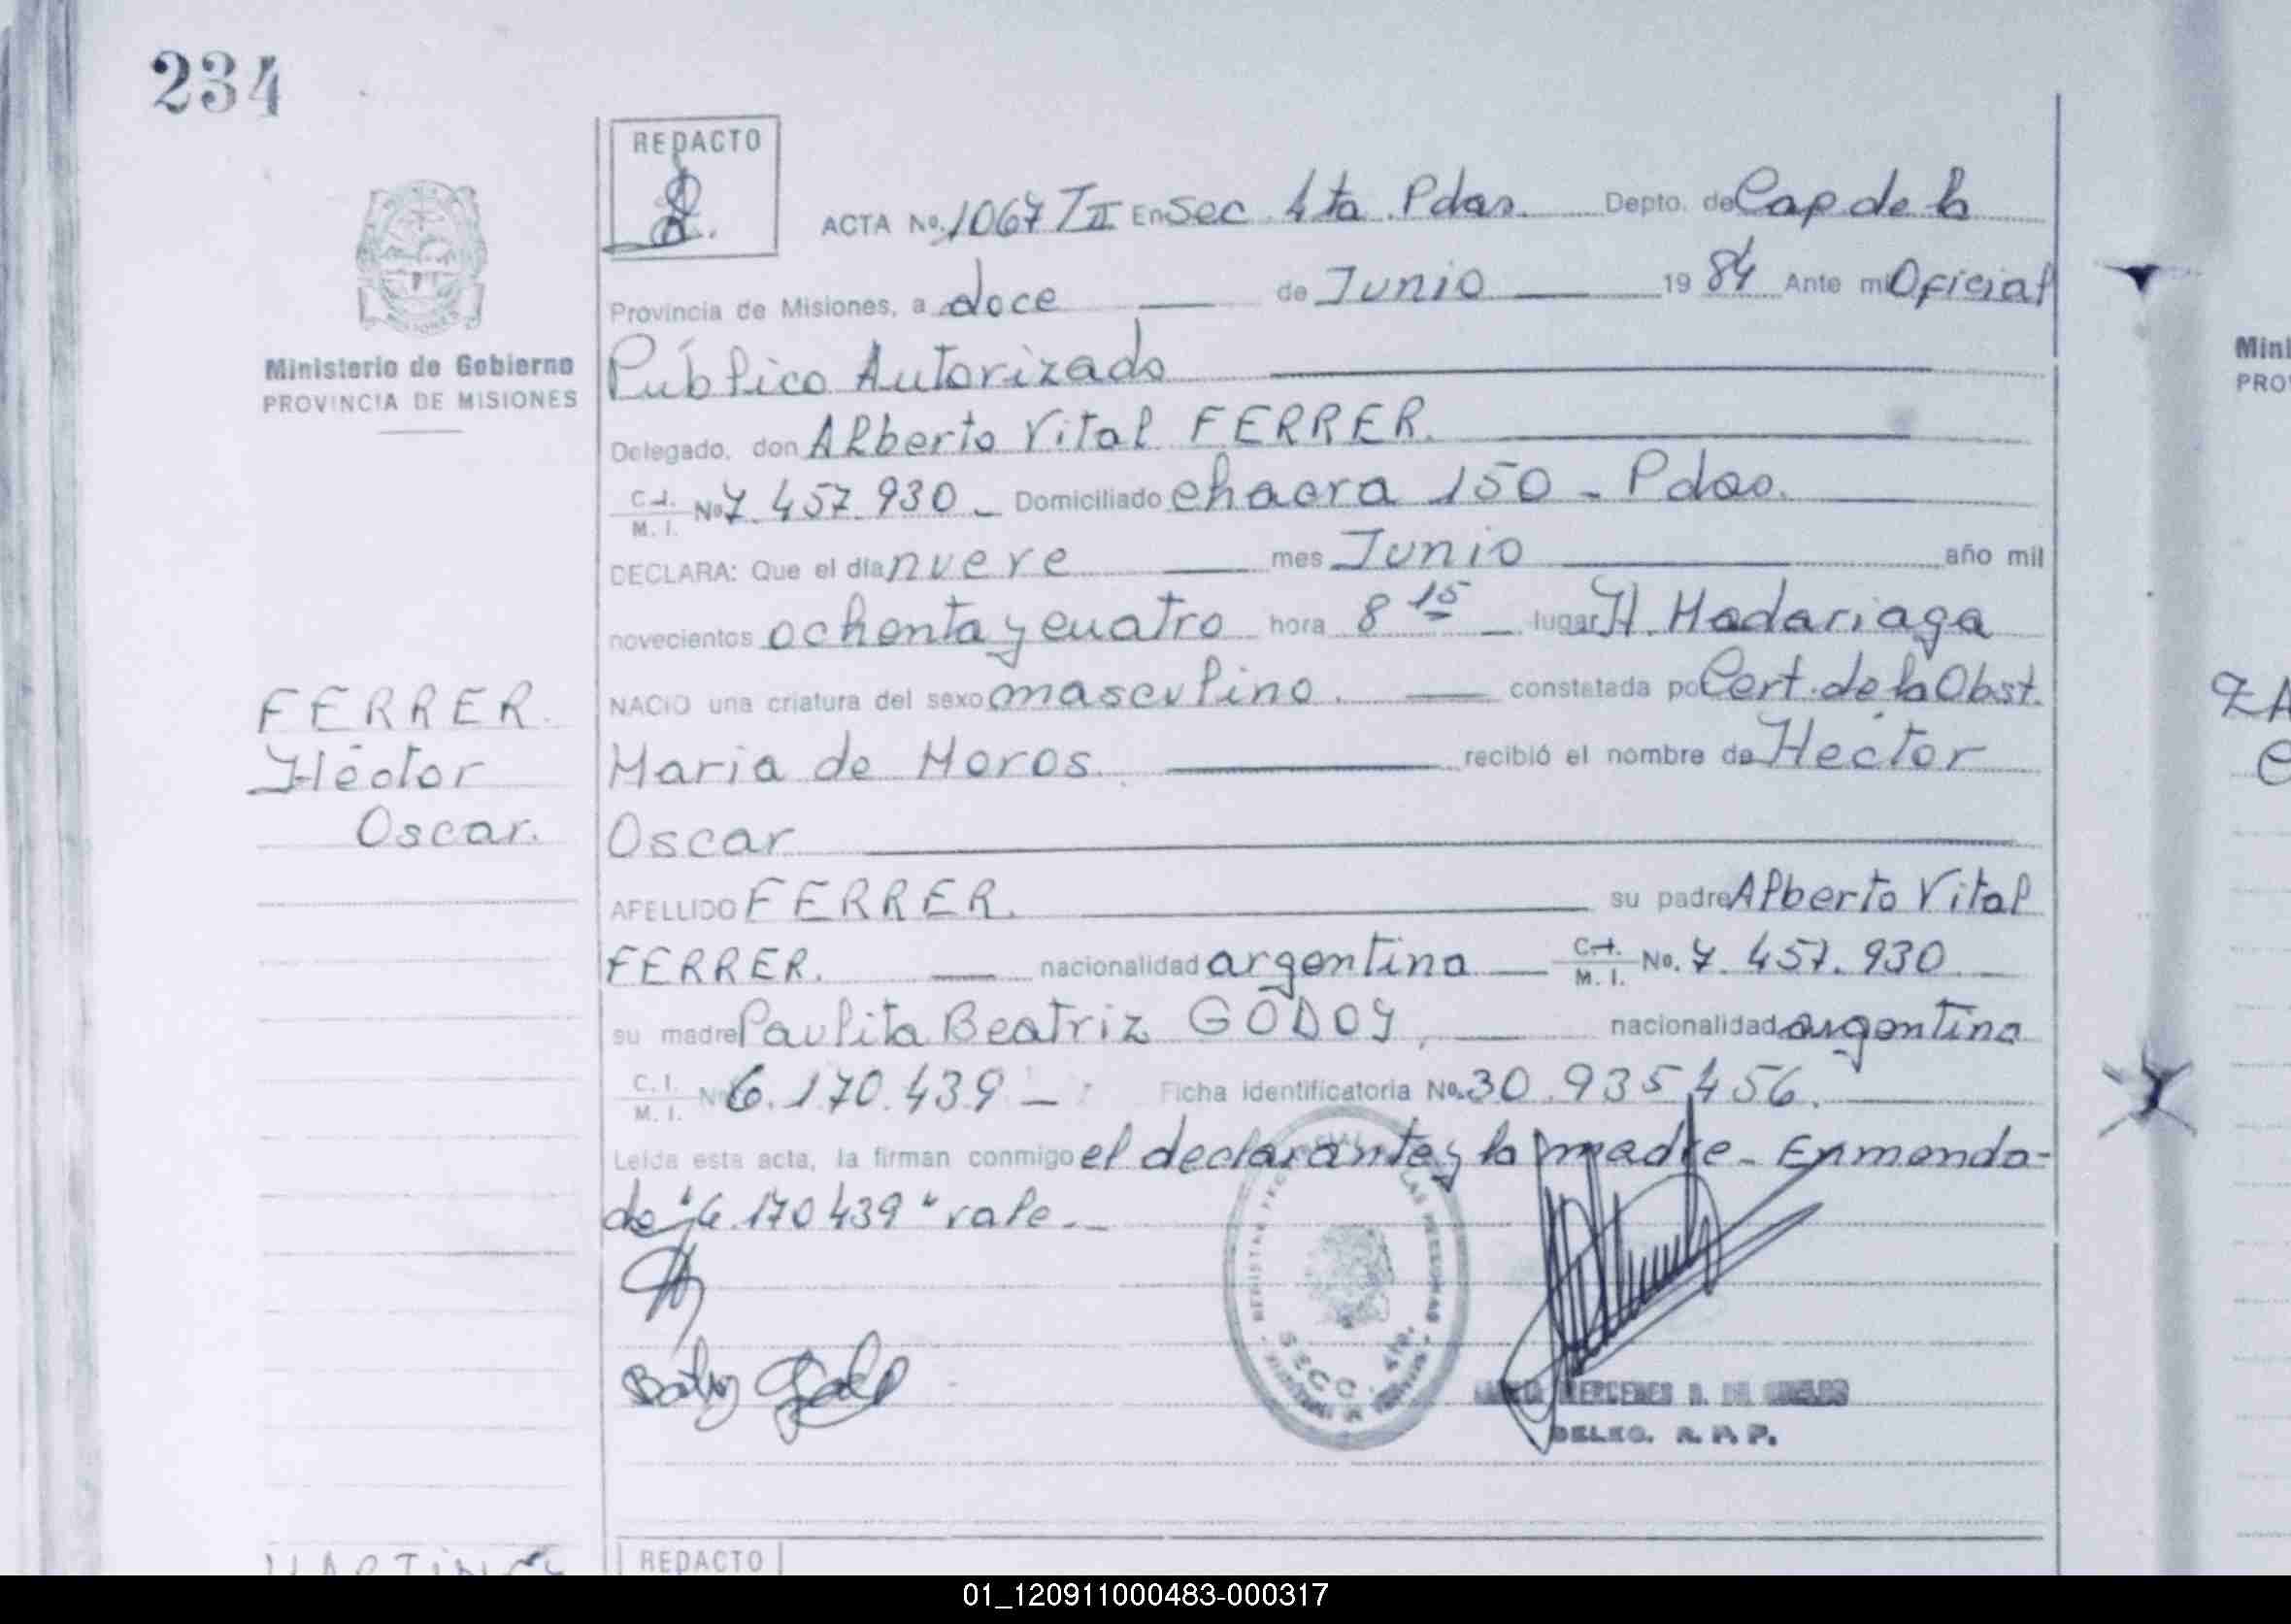 234
REDACTO
ACTA No. 1067 / II En Sec 4ta. Pdas. Depto. de Cap. de la
Provincia de Misiones, a doce de Junio 1984 Ante mi Oficial
Ministerio de Gobierno
PROVINCIA DE MISIONES
Público Autorizado
Delegado, don Alberto Vital FERRER.
C.I. M. I. No 7.457.930 Domiciliado chacra 150 - Pdas.
DECLARA: Que el día nueve mes Junio año mil
novecientos ochenta y cuatro hora 8 15 lugar H. Madariaga
NACIO una criatura del sexo masculino. constatada por Cert. de la Obst.
Maria de Moros. recibió el nombre de Hector
Oscar
FERRER.
Héctor
Oscar.
APELLIDO FERRER. su padre Alberto Vital
FERRER. nacionalidad argentina C.I. M. I. No. 7.457.930
su madre Paulita Beatriz GODOY, nacionalidad argentina
C. I. M. I. No 6.170.439 - Ficha identificatoria No. 30.935.456.
Leída esta acta, la firman conmigo el declarante y la madre - Enmenda-
do "6.170439" vale.-
SECC. 4ta.
DELEG. R. P. P.
REDACTO
Mini
PRO
ZA
01_120911000483-000317